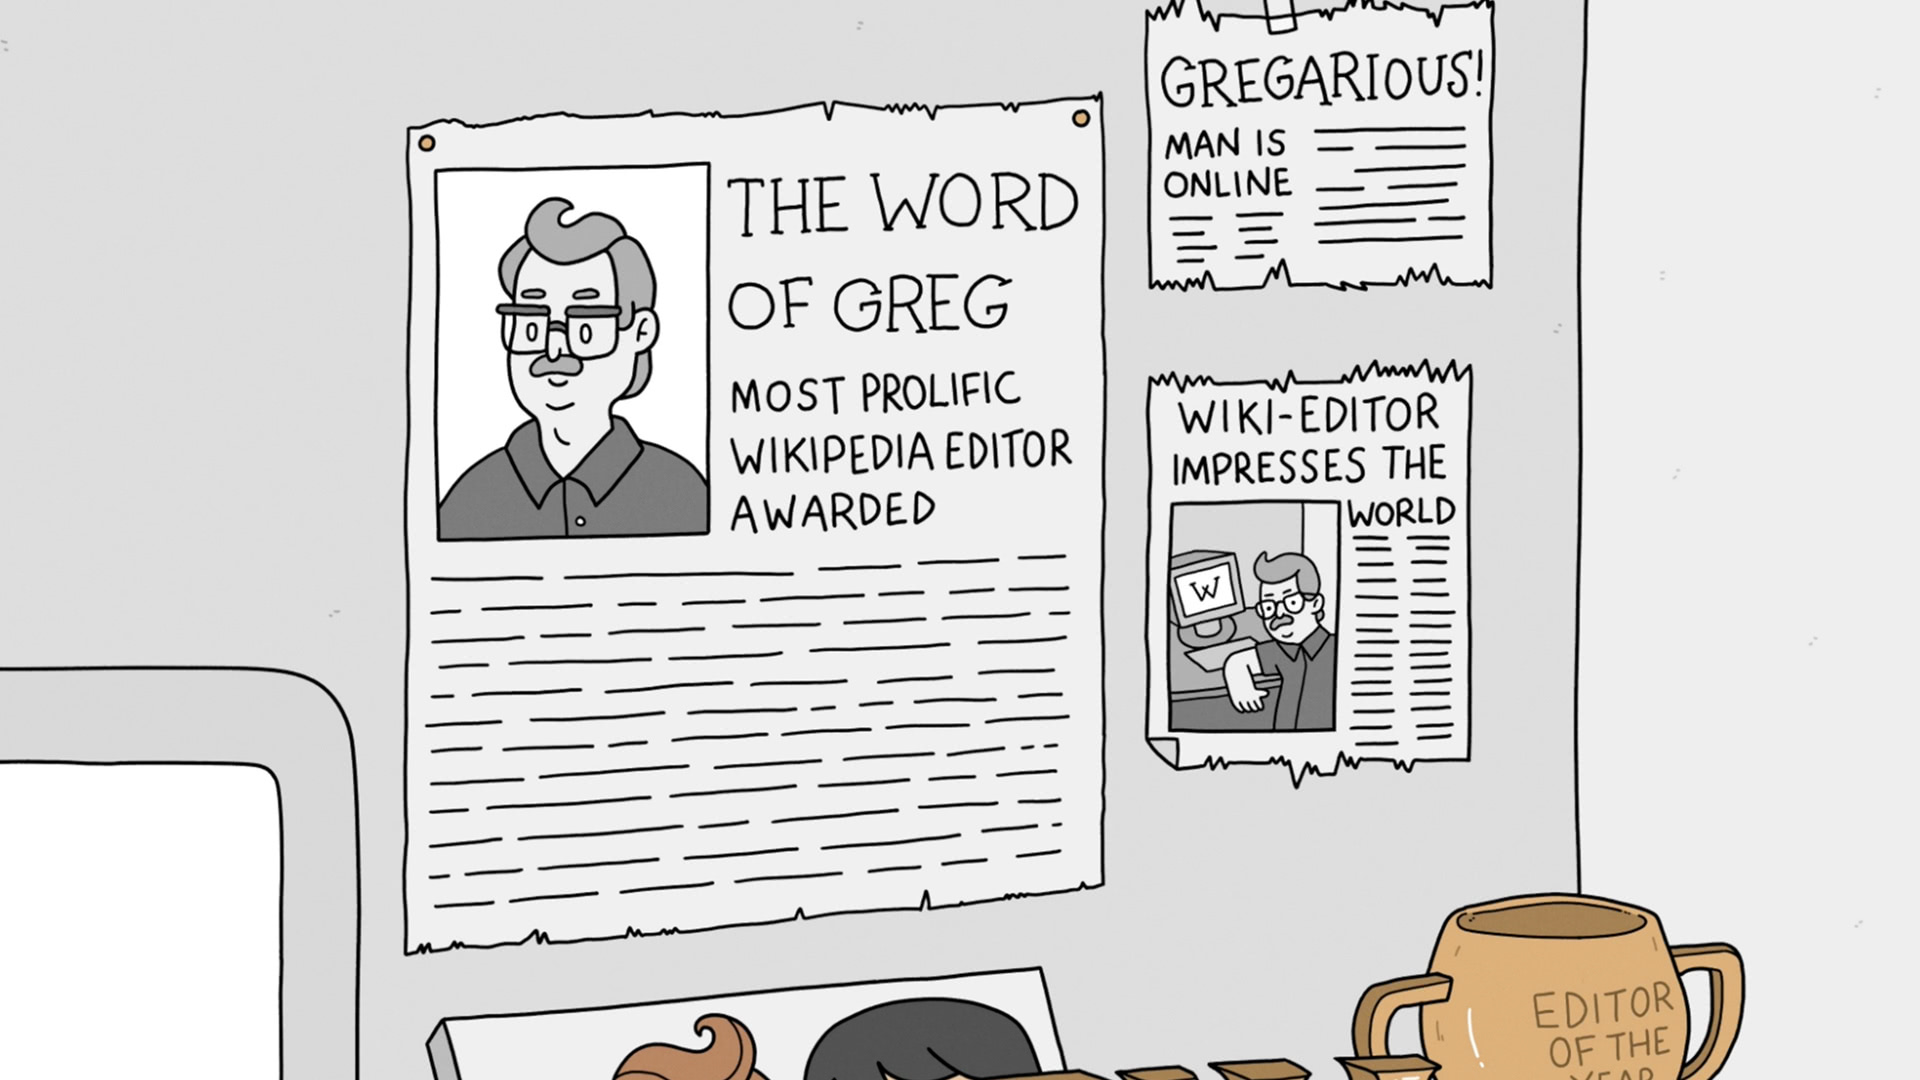 THE WORD
OF GREG
MOST PROLIFIC
WIKIPEDIA EDITOR
AWARDED
GREGARIOUS!
MAN IS
ONLINE
WIKI-EDITOR
IMPRESSES THE
WORLD
W
EDITOR
OF THE
YEAR